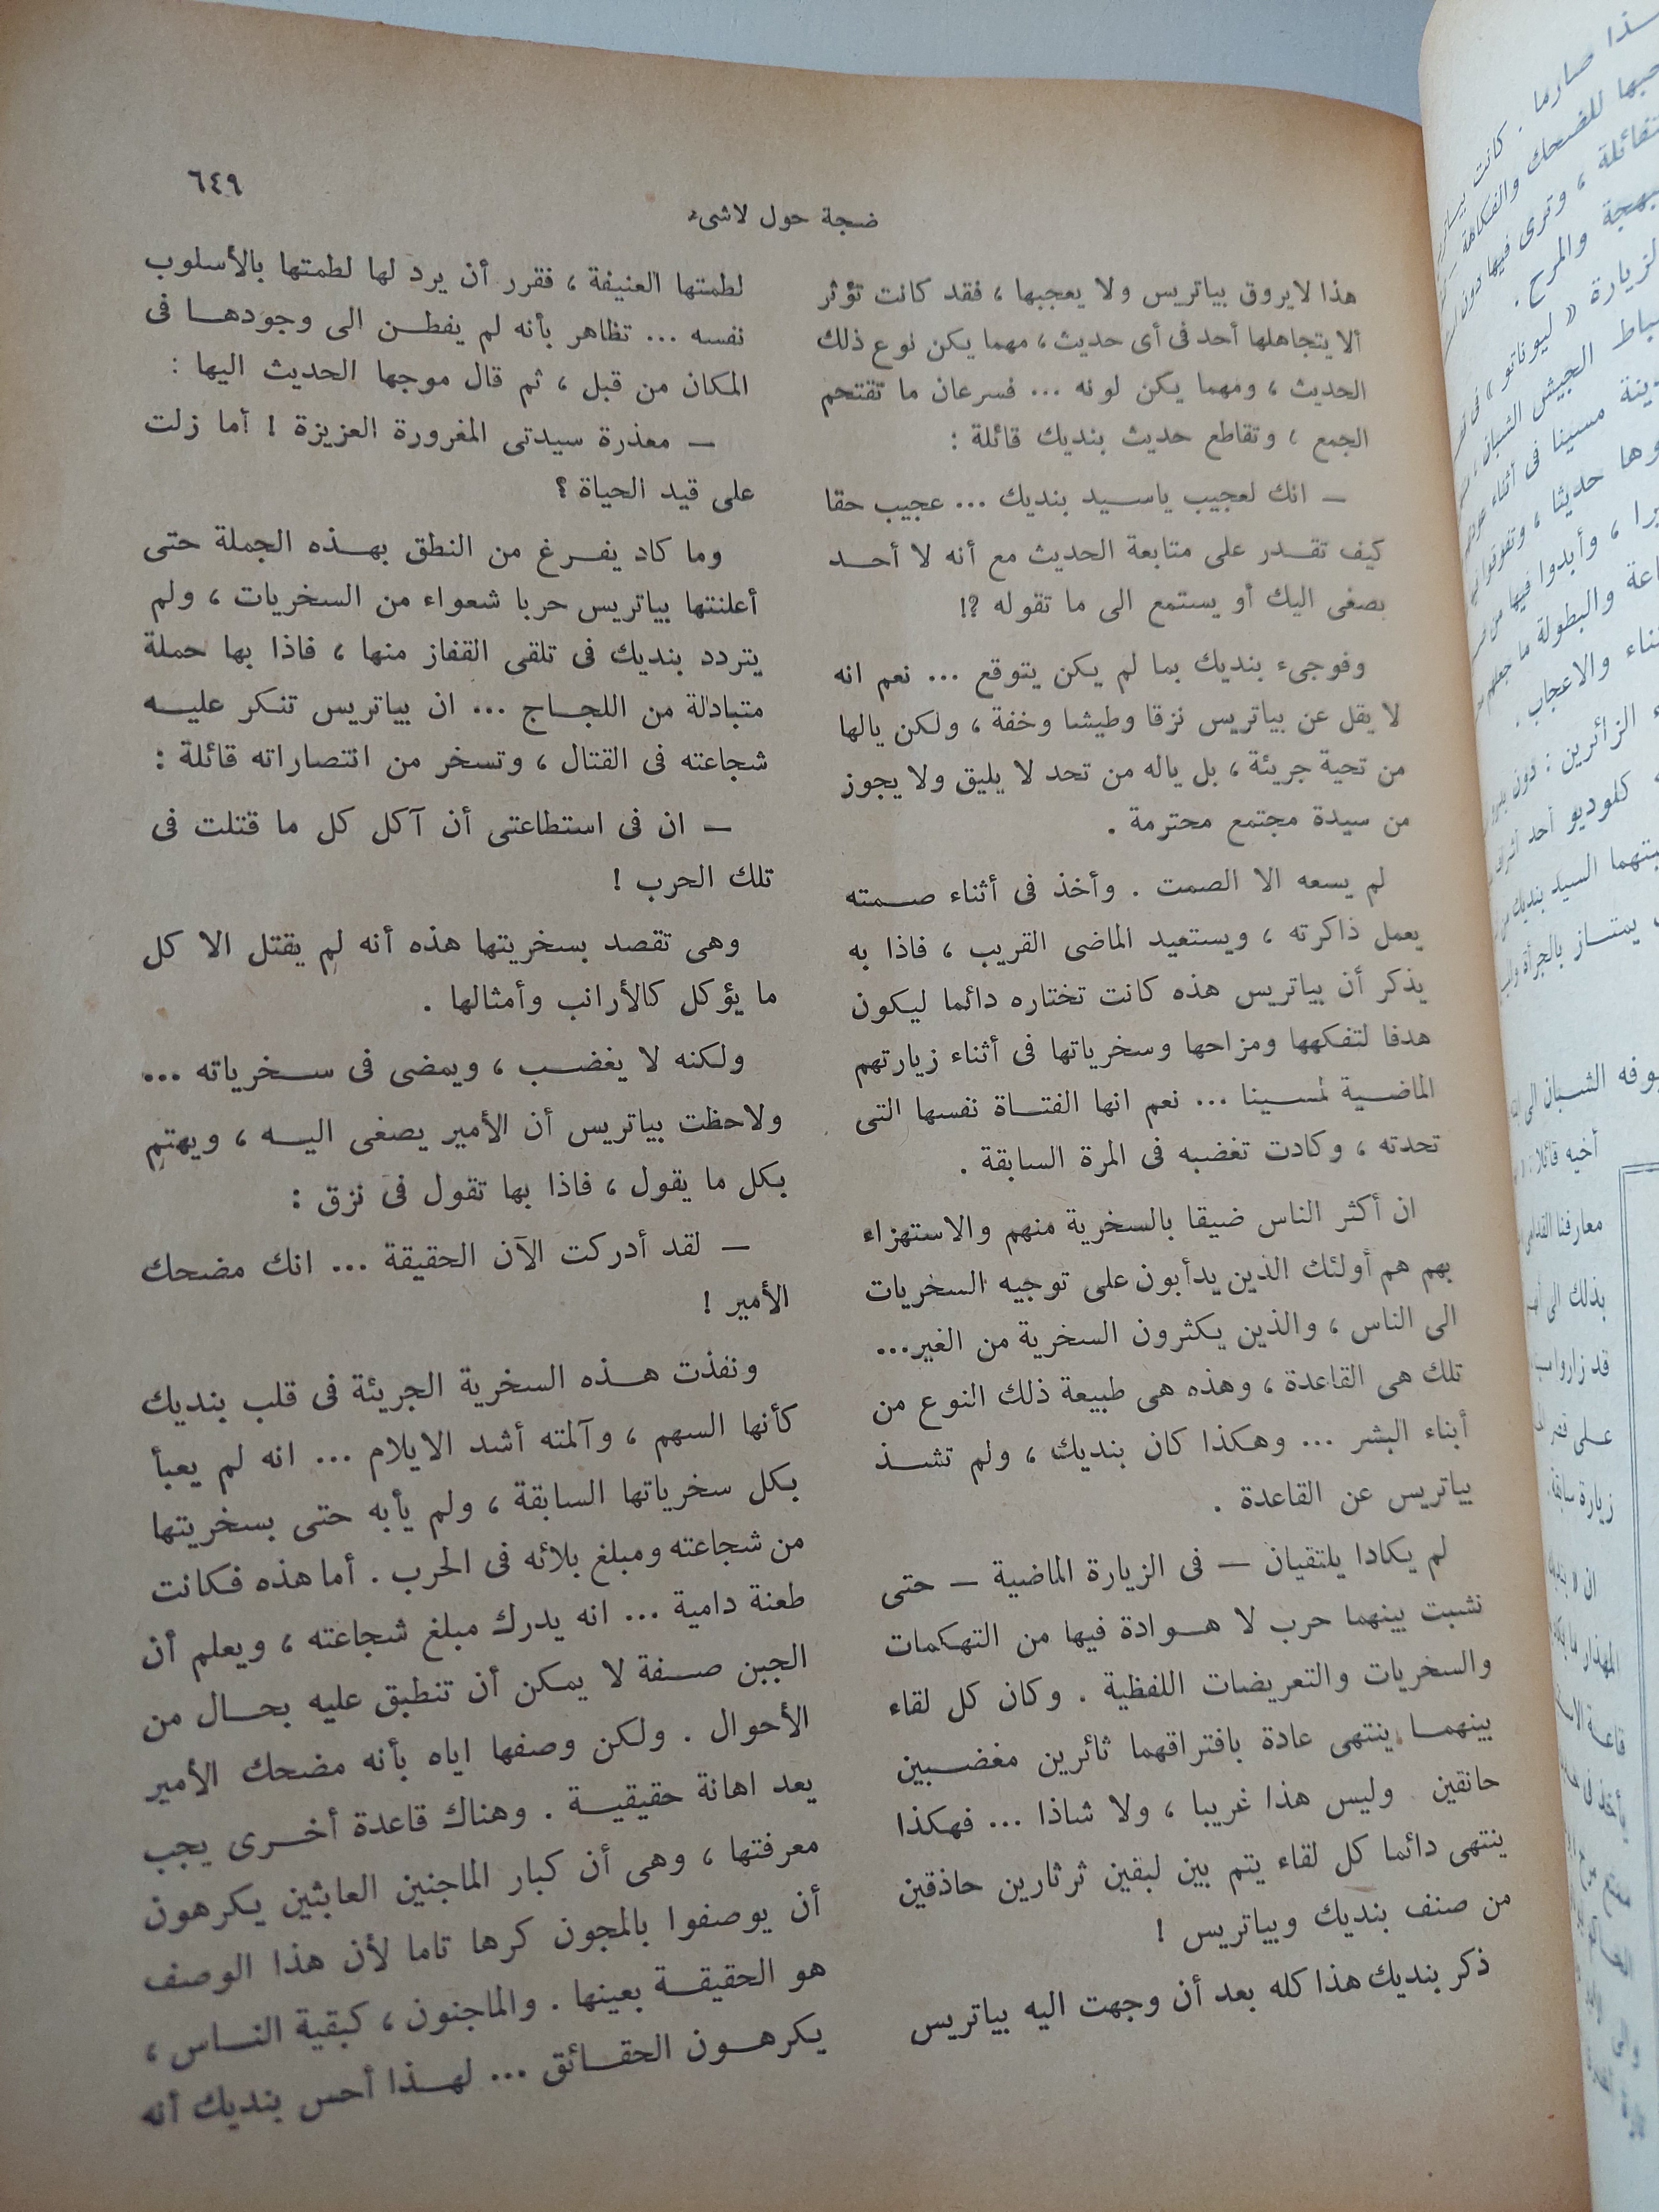 ٦٤٩
ضجة حول لاشىء
هذا لايروق بياتريس ولا يعجبها ، فقد كانت تؤثر
ألا يتجاهلها أحد فى أى حديث ، مهما يكن نوع ذلك
الحديث ، ومهما يكن لونه ... فسرعان ما تقتحم
الجمع ، وتقاطع حديث بنديك قائلة :
— انك لعجيب ياسيد بنديك ... عجيب حقا
كيف تقدر على متابعة الحديث مع أنه لا أحد
يصغى اليك أو يستمع الى ما تقوله ؟!
وفوجىء بنديك بما لم يكن يتوقع ... نعم انه
لا يقل عن بياتريس نزقا وطيشا وخفة ، ولكن يالها
من تحية جريئة ، بل ياله من تحد لا يليق ولا يجوز
من سيدة مجتمع محترمة .
لم يسعه الا الصمت . وأخذ فى أثناء صمته
يعمل ذاكرته ، ويستعيد الماضى القريب ، فاذا به
يذكر أن بياتريس هذه كانت تختاره دائما ليكون
هدفا لتفكهها ومزاحها وسخرياتها فى أثناء زيارتهم
الماضية لمسينا ... نعم انها الفتاة نفسها التى
تحدته ، وكادت تغضبه فى المرة السابقة .
ان أكثر الناس ضيقا بالسخرية منهم والاستهزاء
بهم هم أولئك الذين يدأبون على توجيه السخريات
الى الناس ، والذين يكثرون السخرية من الغير...
تلك هى القاعدة ، وهذه هى طبيعة ذلك النوع من
أبناء البشر ... وهكذا كان بنديك ، ولم تشذ
بياتريس عن القاعدة .
لم يكادا يلتقيان — فى الزيارة الماضية — حتى
نشبت بينهما حرب لا هوادة فيها من التهكمات
والسخريات والتعريضات اللفظية . وكان كل لقاء
بينهما ينتهى عادة بافتراقهما ثائرين مغضبين
حانقين وليس هذا غريبا ، ولا شاذا ... فهكذا
ينتهى دائما كل لقاء يتم بين لبقين ثرثارين حاذقين
من صنف بنديك وبياتريس !
ذكر بنديك هذا كله بعد أن وجهت اليه بياتريس
لطمتها العنيفة ، فقرر أن يرد لها لطمتها بالأسلوب
نفسه ... تظاهر بأنه لم يفطن الى وجودها فى
المكان من قبل ، ثم قال موجها الحديث اليها :
— معذرة سيدتى المغرورة العزيزة ! أما زلت
على قيد الحياة ؟
وما كاد يفرغ من النطق بهذه الجملة حتى
أعلنتها بياتريس حربا شعواء من السخريات ، ولم
يتردد بنديك فى تلقى القفاز منها ، فاذا بها حملة
متبادلة من اللجاج ... ان بياتريس تنكر عليه
شجاعته فى القتال ، وتسخر من انتصاراته قائلة :
— ان فى استطاعتى أن آكل كل ما قتلت فى
تلك الحرب !
وهى تقصد بسخريتها هذه أنه لم يقتل الا كل
ما يؤكل كالأرانب وأمثالها .
ولكنه لا يغضب ، ويمضى فى سخرياته ...
ولاحظت بياتريس أن الأمير يصغى اليه ، ويهتم
بكل ما يقول ، فاذا بها تقول فى نزق :
— لقد أدركت الآن الحقيقة ... انك مضحك
الأمير !
ونفذت هذه السخرية الجريئة فى قلب بنديك
كأنها السهم ، وآلمته أشد الايلام ... انه لم يعبأ
بكل سخرياتها السابقة ، ولم يأبه حتى بسخريتها
من شجاعته ومبلغ بلائه فى الحرب . أما هذه فكانت
طعنة دامية ... انه يدرك مبلغ شجاعته ، ويعلم أن
الجبن صفة لا يمكن أن تنطبق عليه بحال من
الأحوال . ولكن وصفها اياه بأنه مضحك الأمير
يعد اهانة حقيقية . وهناك قاعدة أخرى يجب
معرفتها ، وهى أن كبار الماجنين العابثين يكرهون
أن يوصفوا بالمجون كرها تاما لأن هذا الوصف
هو الحقيقة بعينها . والماجنون ، كبقية الناس ،
يكرهون الحقائق ... لهذا أحس بنديك أنه
صارما . كانت
للضحك والفكاهة
، وترى فيها دون
والمرح .
« ليوناتو » فى
الجيش الشبان
مسينا فى أثناء
حديثا ، وتفوقوا
، وأبدوا فيها من
والبطولة ما جعلهم
والاعجاب .
الزائرين : دون
كلوديو أحد
السيد بنديك من
يمتاز بالجرأة
الشبان الى
أخيه قائلا :
معارفنا القدامى
بذلك الى
قد زاروا
على
زيارة سابقة
ان «
المهذار
قاعة